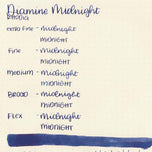 Diamine Midnight
Rhodia
extra fine - Midnight
MIDNIGHT
Fine - Midnight
MIDNIGHT
Medium - Midnight
MIDNIGHT
BROAD - Midnight
MIDNIGHT
FLEX - Midnight
MIDNIGHT